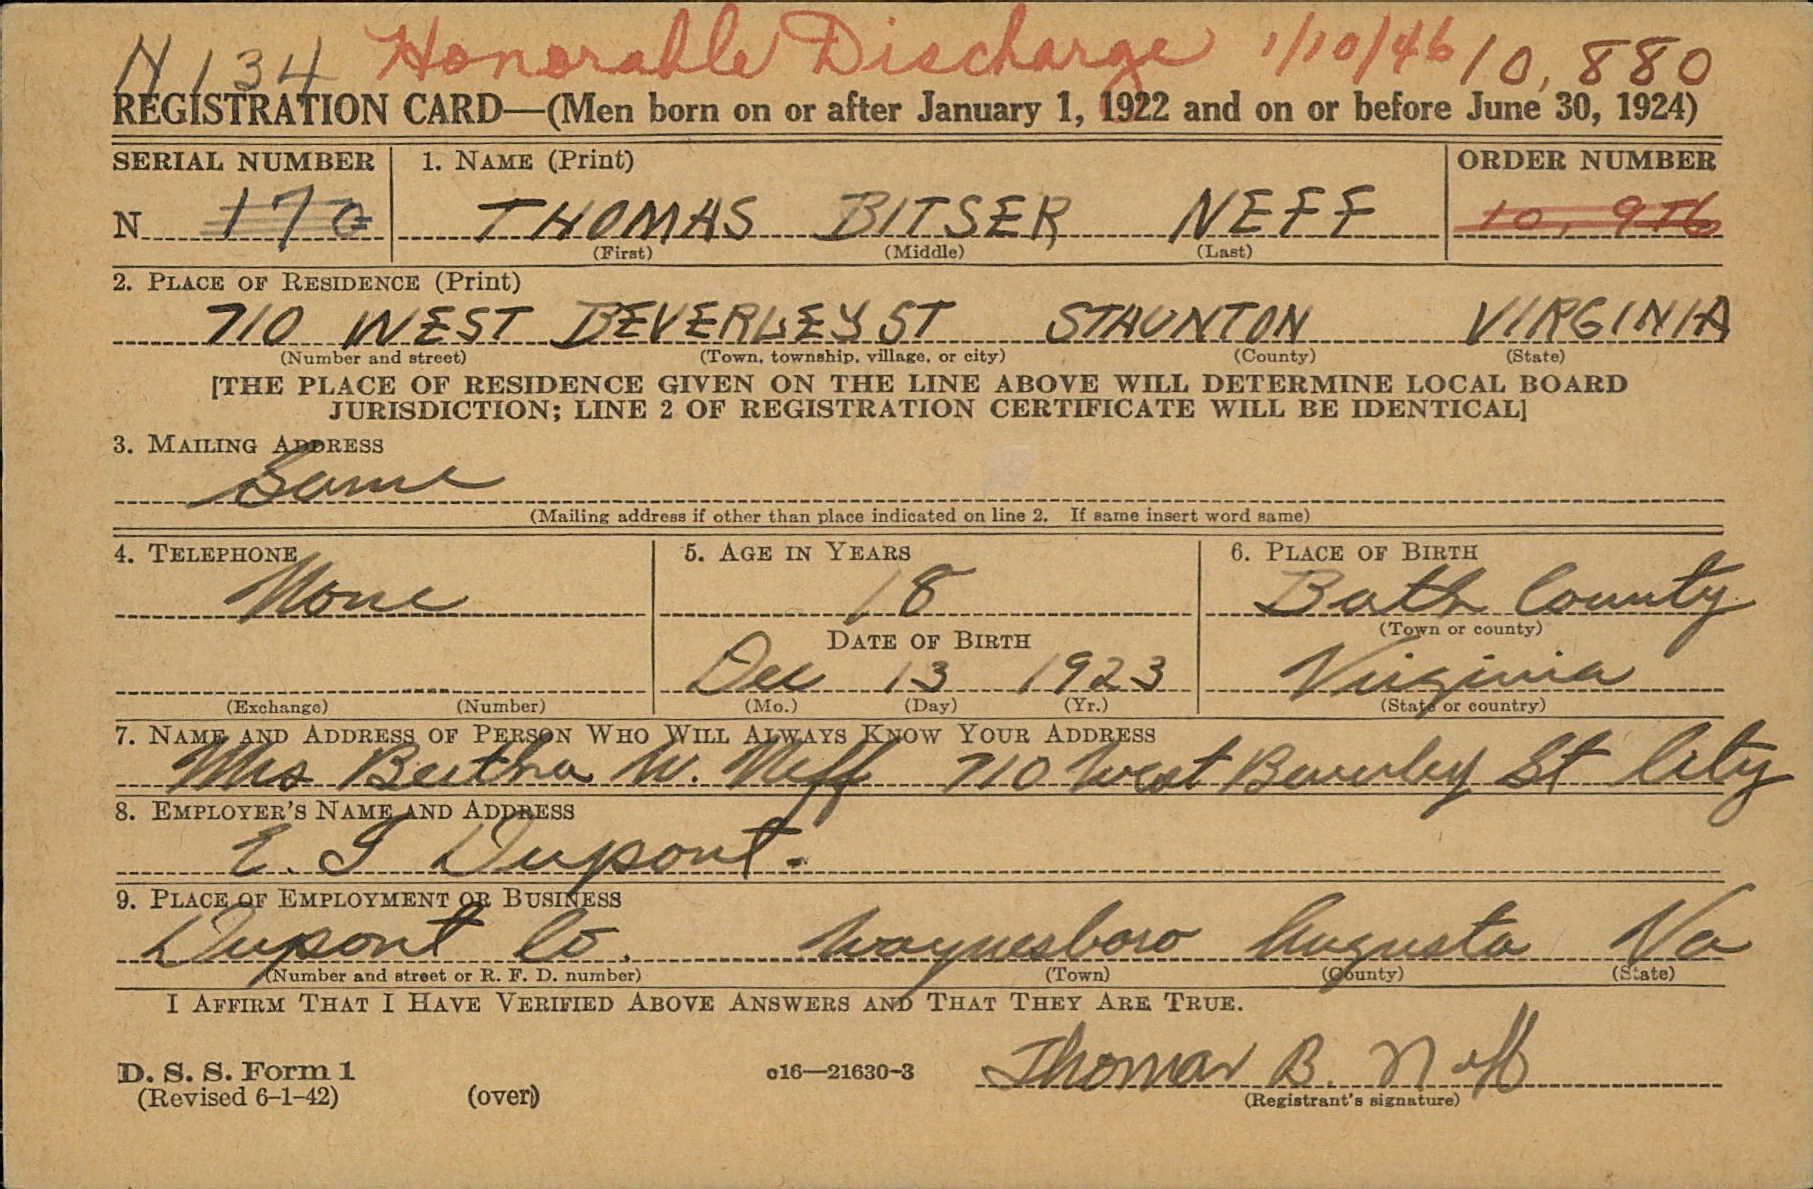 N 134 Honorable Discharge 1/10/46 10,880
REGISTRATION CARD—(Men born on or after January 1, 1922 and on or before June 30, 1924)
SERIAL NUMBER 1. NAME (Print) ORDER NUMBER
N 170 THOMAS BITSER NEFF 10,976
(First) (Middle) (Last)
2. PLACE OF RESIDENCE (Print)
710 WEST BEVERLEY ST STAUNTON VIRGINIA
(Number and street) (Town, township, village, or city) (County) (State)
[THE PLACE OF RESIDENCE GIVEN ON THE LINE ABOVE WILL DETERMINE LOCAL BOARD
JURISDICTION; LINE 2 OF REGISTRATION CERTIFICATE WILL BE IDENTICAL]
3. MAILING ADDRESS
Same
(Mailing address if other than place indicated on line 2. If same insert word same)
4. TELEPHONE 5. AGE IN YEARS 6. PLACE OF BIRTH
None 18 Bath County
DATE OF BIRTH (Town or county)
Dec 13 1923 Virginia
(Exchange) (Number) (Mo.) (Day) (Yr.) (State or country)
7. NAME AND ADDRESS OF PERSON WHO WILL ALWAYS KNOW YOUR ADDRESS
Mrs Bertha W. Neff 710 West Beverley St City
8. EMPLOYER'S NAME AND ADDRESS
E. I Dupont.
9. PLACE OF EMPLOYMENT OR BUSINESS
Dupont Co. Waynesboro Augusta Va
(Number and street or R. F. D. number) (Town) (County) (State)
I AFFIRM THAT I HAVE VERIFIED ABOVE ANSWERS AND THAT THEY ARE TRUE.
D. S. S. Form 1 c16—21630-3 Thomas B. Neff
(Revised 6-1-42) (over) (Registrant's signature)